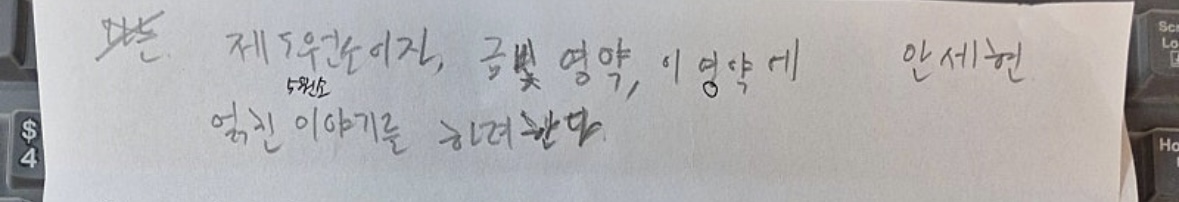 제 5원소이자, 금빛 영약, 이 영약에 안세현
5원소
얽힌 이야기를 하려한다.
$
4